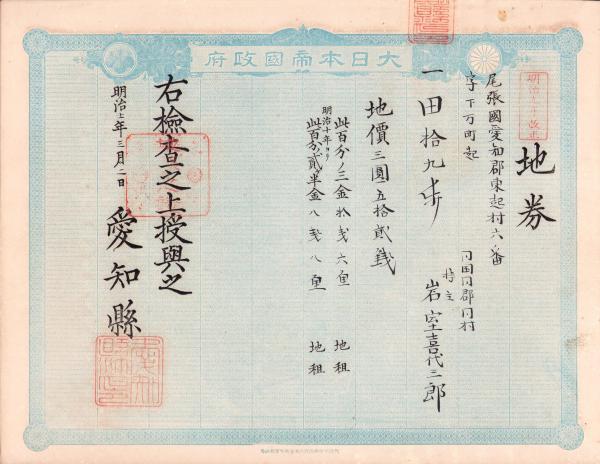 大日本帝國政府
明治九年改正
地券
尾張國愛知郡東起村六番
字下万町起
一田拾九歩
同国同郡同村
持主 岩室喜代三郎
地價三圓五拾貳錢
此百分ノ三金拾錢六厘 地租
明治十年ヨリ
此百分ノ貳半金八錢八厘 地租
右檢查之上授與之
明治十二年三月二日
愛知縣